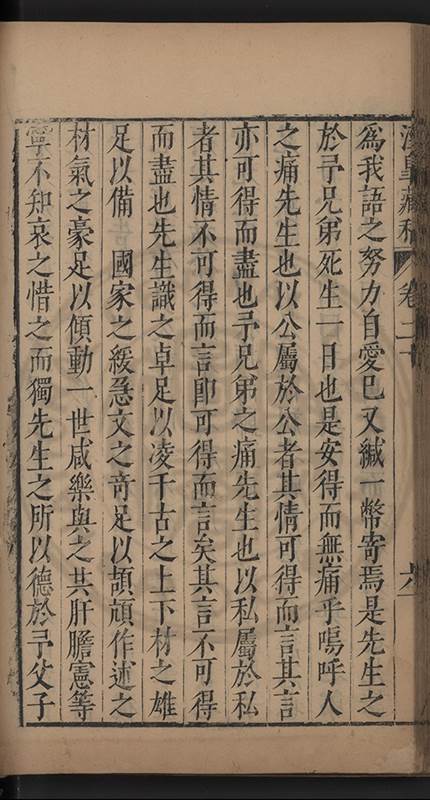 漢皐藏稿 卷二十 六
爲我語之努力自愛巳又緘一幣寄焉是先生之
於予兄弟死生一日也是安得而無痛乎嗚呼人
之痛先生也以公屬於公者其情可得而言其言
亦可得而盡也予兄弟之痛先生也以私屬於私
者其情不可得而言卽可得而言矣其言不可得
而盡也先生識之卓足以凌千古之上下材之雄
足以備 國家之緩急文之奇足以頡頏作述之
材氣之豪足以傾動一世咸樂與之共肝膽憲等
寧不知哀之惜之而獨先生之所以德於予父子